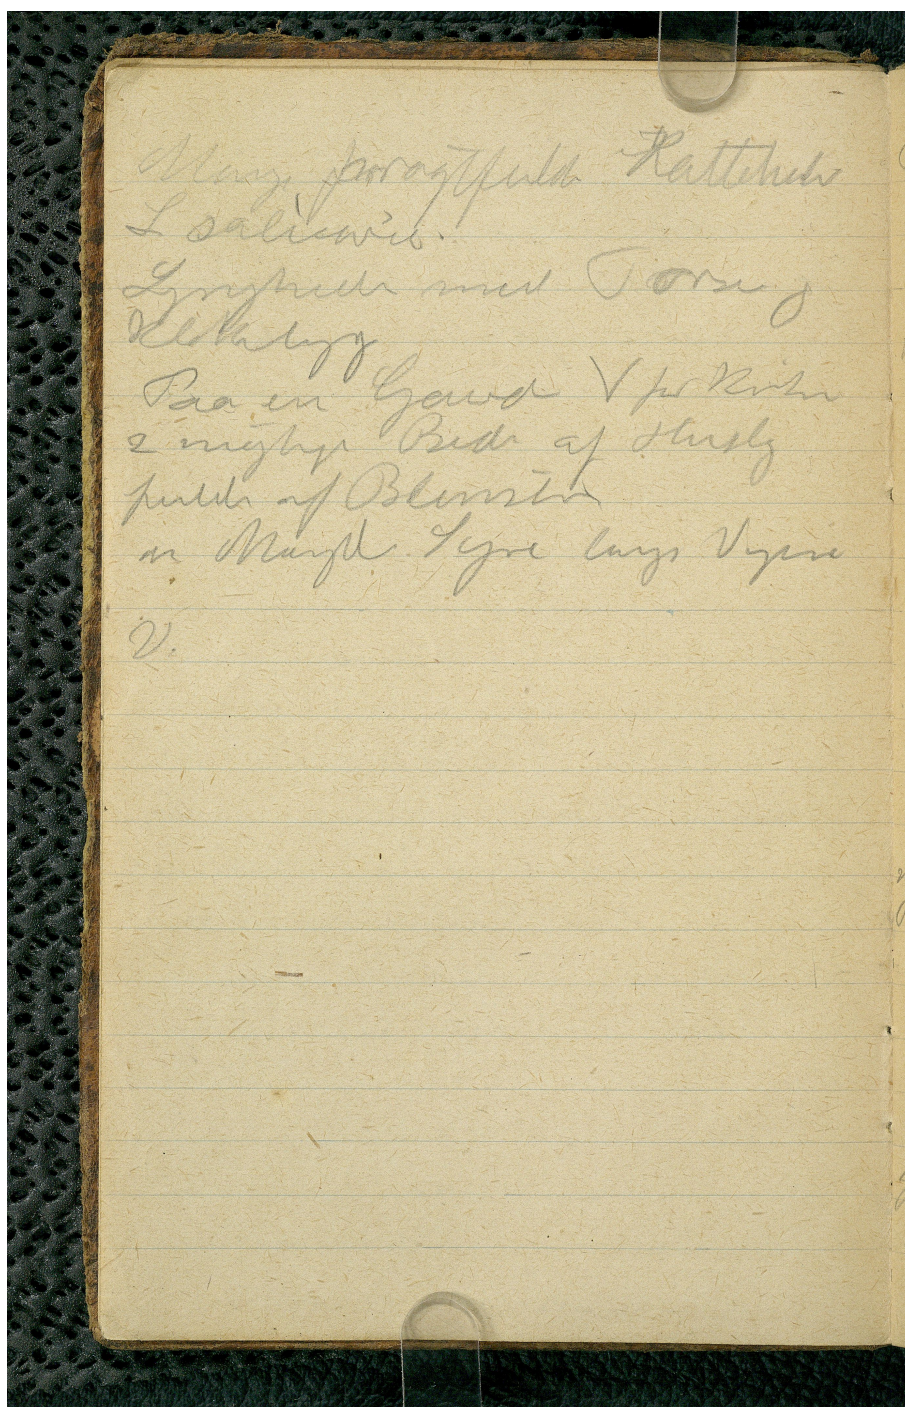 Mange pragtfulde Kattehale
L salicaria.
Lynghede med Torse
Paa en Gaard V for Kirken
2 mægtige Bede af Husløg
fulde af Blomster
en Mængd. Syre langs Vejene
V.